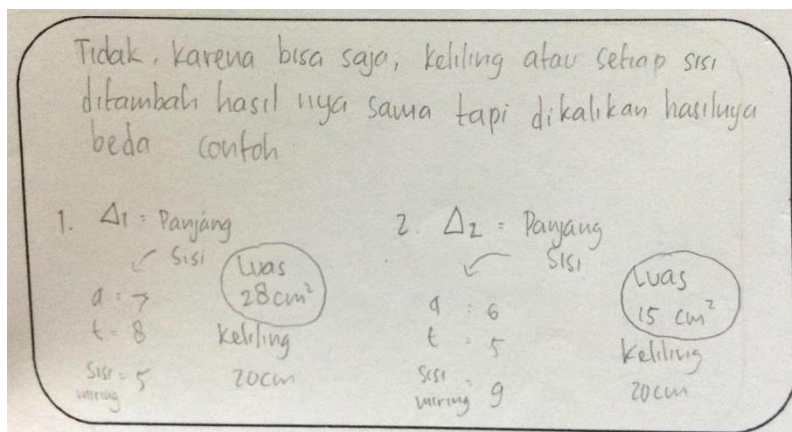 Tidak, karena bisa saja, keliling atau setiap sisi
ditambah hasil nya sama tapi dikalikan hasilnya
beda contoh
1. Δ1 = Panjang
sisi
a = 7
t = 8
sisi miring = 5
Luas
28 cm²
keliling
20cm
2. Δ2 = Panjang
sisi
a = 6
t = 5
sisi miring = 9
Luas
15 cm²
keliling
20cm